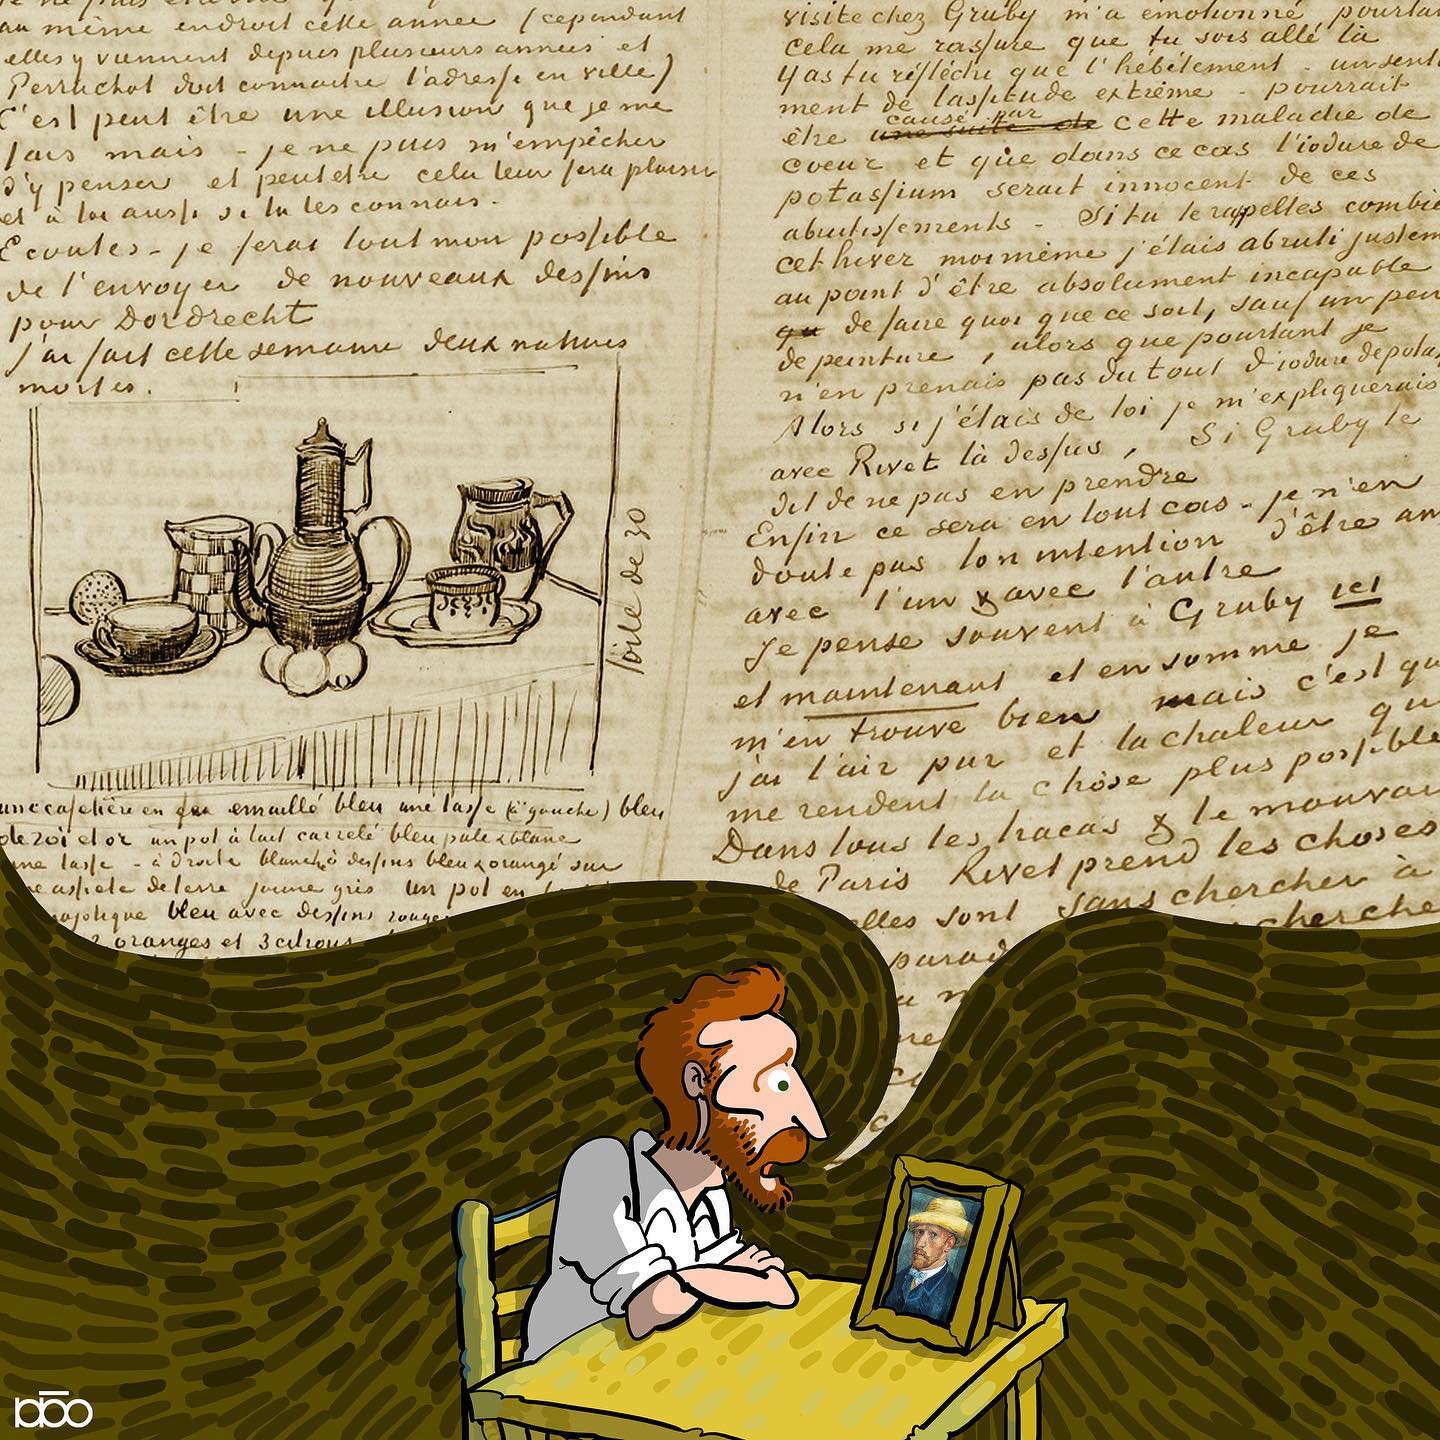 au même endroit cette année (cependant
elles y viennent depuis plusieurs années et
Perruchot doit connaitre l'adresse en ville)
C'est peut être une illusion que je me
fais mais - je ne puis m'empêcher
d'y penser et peutetre cela leur fera plaisir
et à toi aussi si tu les connais.
Ecoutes - je ferai tout mon possible
de t'envoyer de nouveaux dessins
pour Dordrecht
J'ai fait cette semaine deux natures
mortes.
Toile de 30
une cafetière en fer emaillé bleu une tasse (à gauche) bleu
de roi et or un pot à lait carrelé bleu pale & blanc
une tasse - à droite blanche à dessins bleu & orangé sur
une assiete de terre jaune gris un pot en
majolique bleu avec dessins rouges
2 oranges et 3 citrons
visite chez Gruby m'a émotionné pourtant
cela me rassure que tu sois allé là
Y as tu réfléchi que l'hébètement - un senti
ment de lassitude extrême - pourrait
être une suite de causé par cette maladie de
coeur et que dans ce cas l'iodure de
potassium serait innocent de ces
abutissements - Si tu te rappelles combien
cet hiver moi même j'étais abruti justem
au point d'être absolument incapable
de faire quoi que ce soit, sauf un peu
de peinture, alors que pourtant je
n'en prenais pas du tout d'iodure de potas
Alors si j'étais de toi je m'expliquerais
avec Rivet là dessus, Si Gruby te
dit de ne pas en prendre
Enfin ce sera en tout cas - je n'en
doute pas ton intention d'être am
avec l'un & avec l'autre
Je pense souvent à Gruby ici
et maintenant et en somme je
m'en trouve bien mais c'est que
j'ai l'air pur et la chaleur qui
me rendent la chôse plus possible
Dans tous les tracas & le mauvais
de Paris Rivet prend les choses
elles sont sans chercher à
cherche
parad
bōo